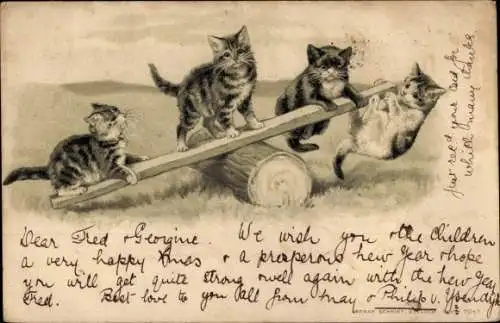 Just rec'd your card for
which many thanks
Dear Fred & Georgine. We wish you & the children
a very happy Xmas & a prosperous New Year & hope
you will get quite strong & well again with the New Year
Fred. Best love to you all from May & Philip v.